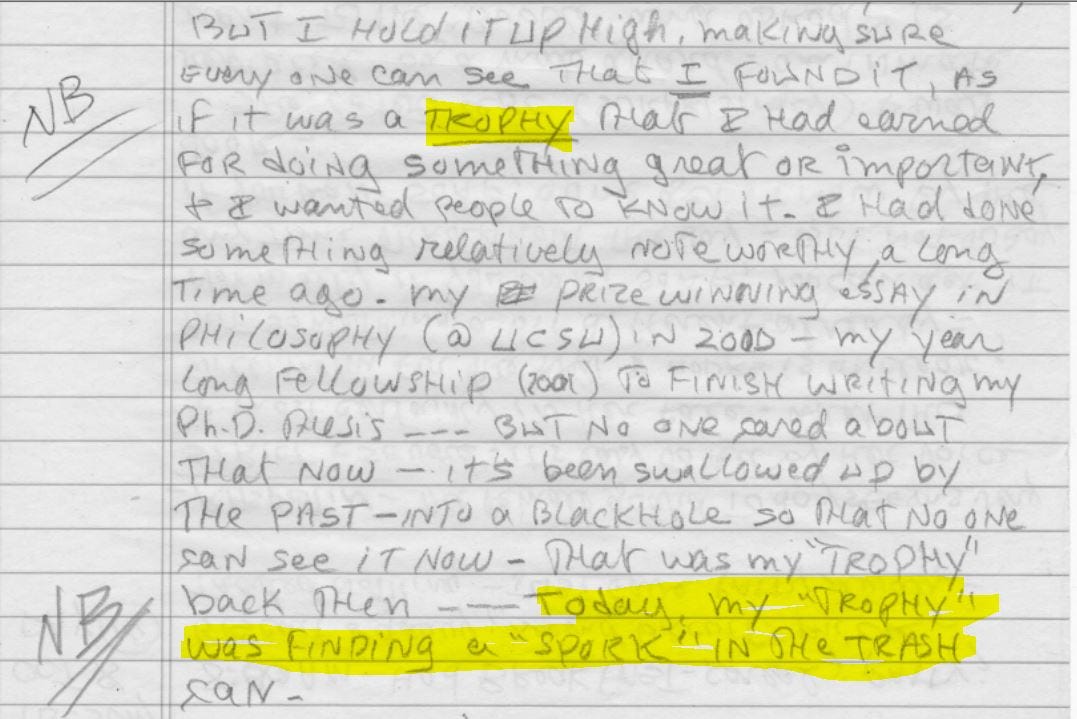 BUT I HOLD IT UP High, making sure
EVERY ONE can see THAT I FOUND IT, AS
NB
if it was a TROPHY THAT I HAD earned
FOR doing something great OR important,
+ I wanted people to KNOW it. I HAD done
something relatively NOTEWORTHY, a long
Time ago. my PRIZE WINNING ESSAY in
PHILOSOPHY (@ UCSU) IN 2000 - my year
long FELLOWSHIP (2001) TO FINISH WRITING my
Ph.D. Thesis --- BUT NO ONE cared about
THAT NOW - it's been swallowed up by
THE PAST - INTO a BLACKHOLE so THAT NO ONE
can see IT NOW - THAT was my "TROPHY"
back THEN --- Today, my "TROPHY"
NB
was FINDING a "SPORK" IN THE TRASH
can -